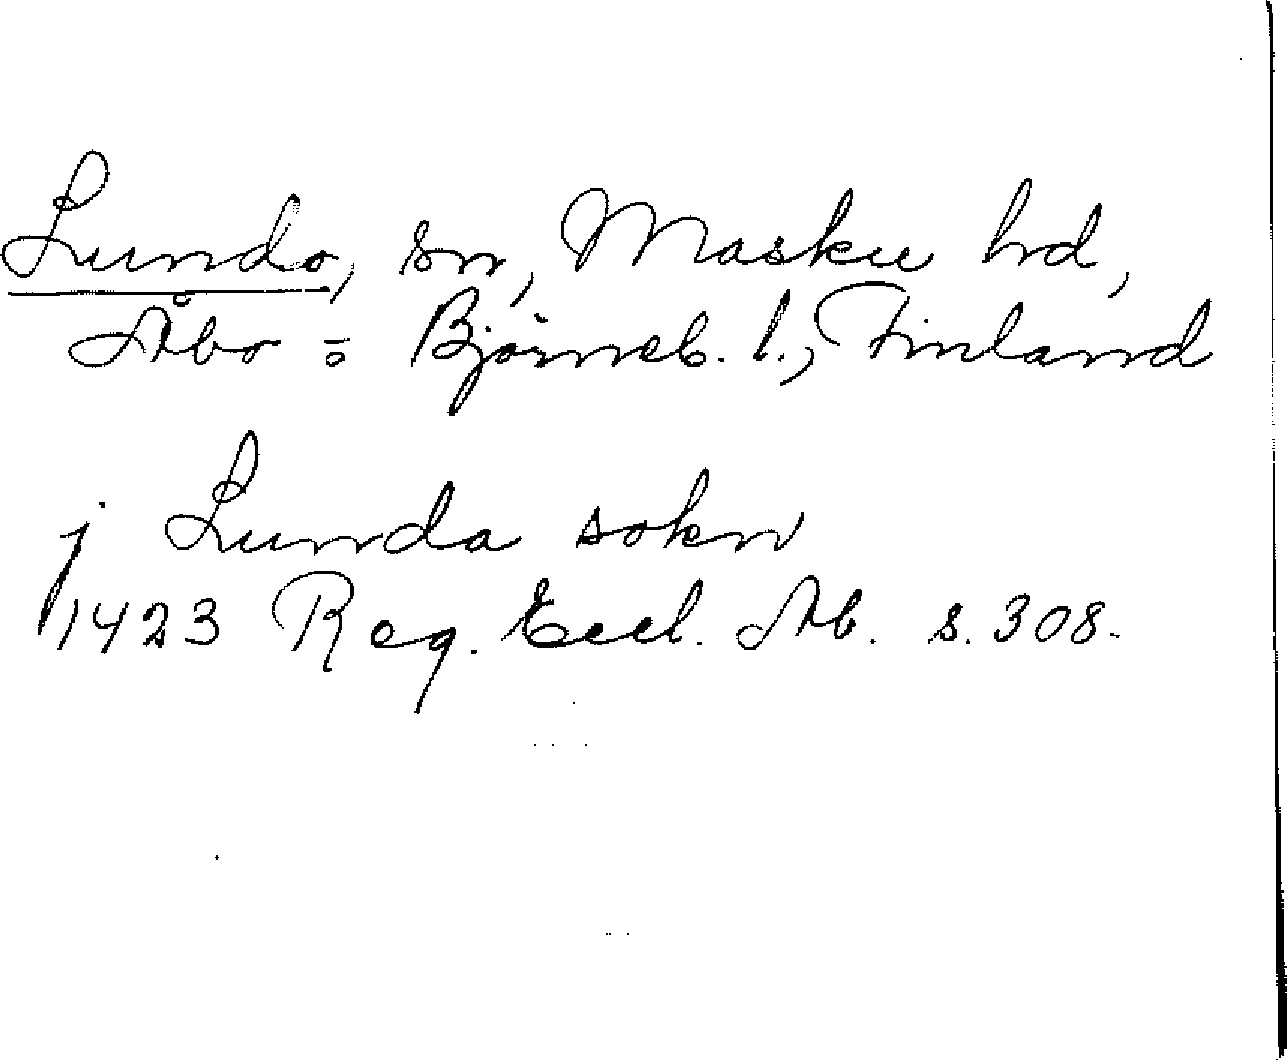 Lundo, sn, Masku hd,
Åbo = Björneb. l., Finland
j Lunda sokn
1423 Reg. Eccl. Ab. s. 308.